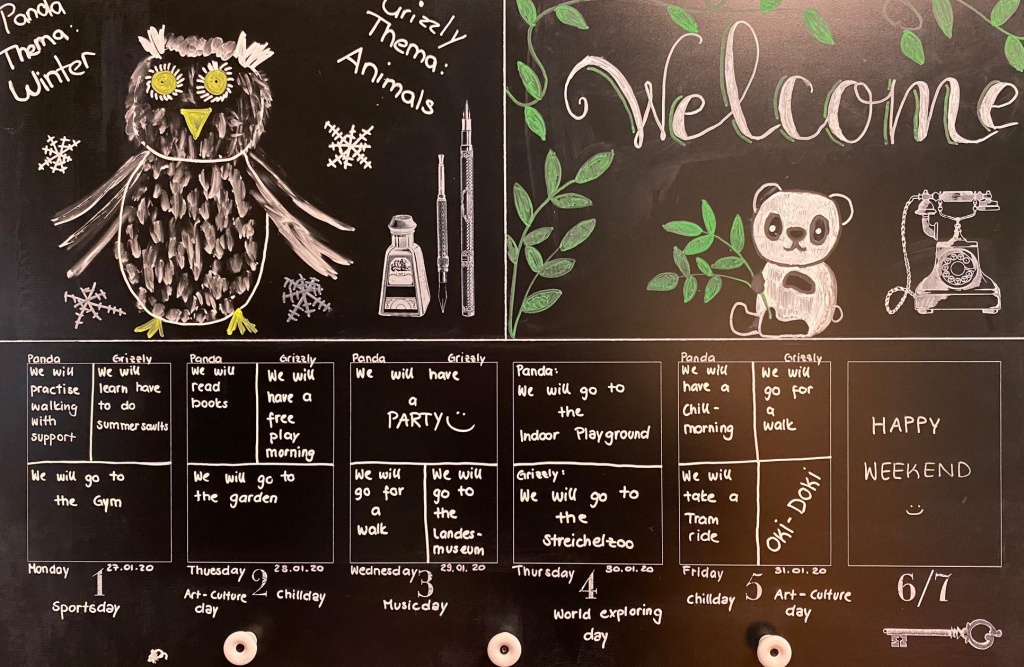 Panda
Thema:
Winter
Grizzly
Thema:
Animals
Welcome
Panda Grizzly
We will
practise
walking
with
support
We will
learn have
to do
summersaults
We will go to
the Gym
Monday 27.01.20
1
Sportsday
Panda Grizzly
We will
read
books
We will
have a
free
play
morning
We will go to
the garden
Thuesday 28.01.20
2
Art-Culture
day
Chillday
Panda Grizzly
We will have
a
PARTY
We will
go for
a
walk
We will
go to
the
Landes-
museum
Wednesday 29.01.20
3
Musicday
Panda:
We will go to
the
Indoor Playground
Grizzly:
We will go to
the
Streichelzoo
Thursday 30.01.20
4
World exploring
day
Panda Grizzly
We will
have a
Chill-
morning
We will
go for
a
walk
We will
take a
Tram
ride
OKI-DOKI
Friday 31.01.20
5
Chillday
Art-Culture
day
HAPPY
WEEKEND
6/7